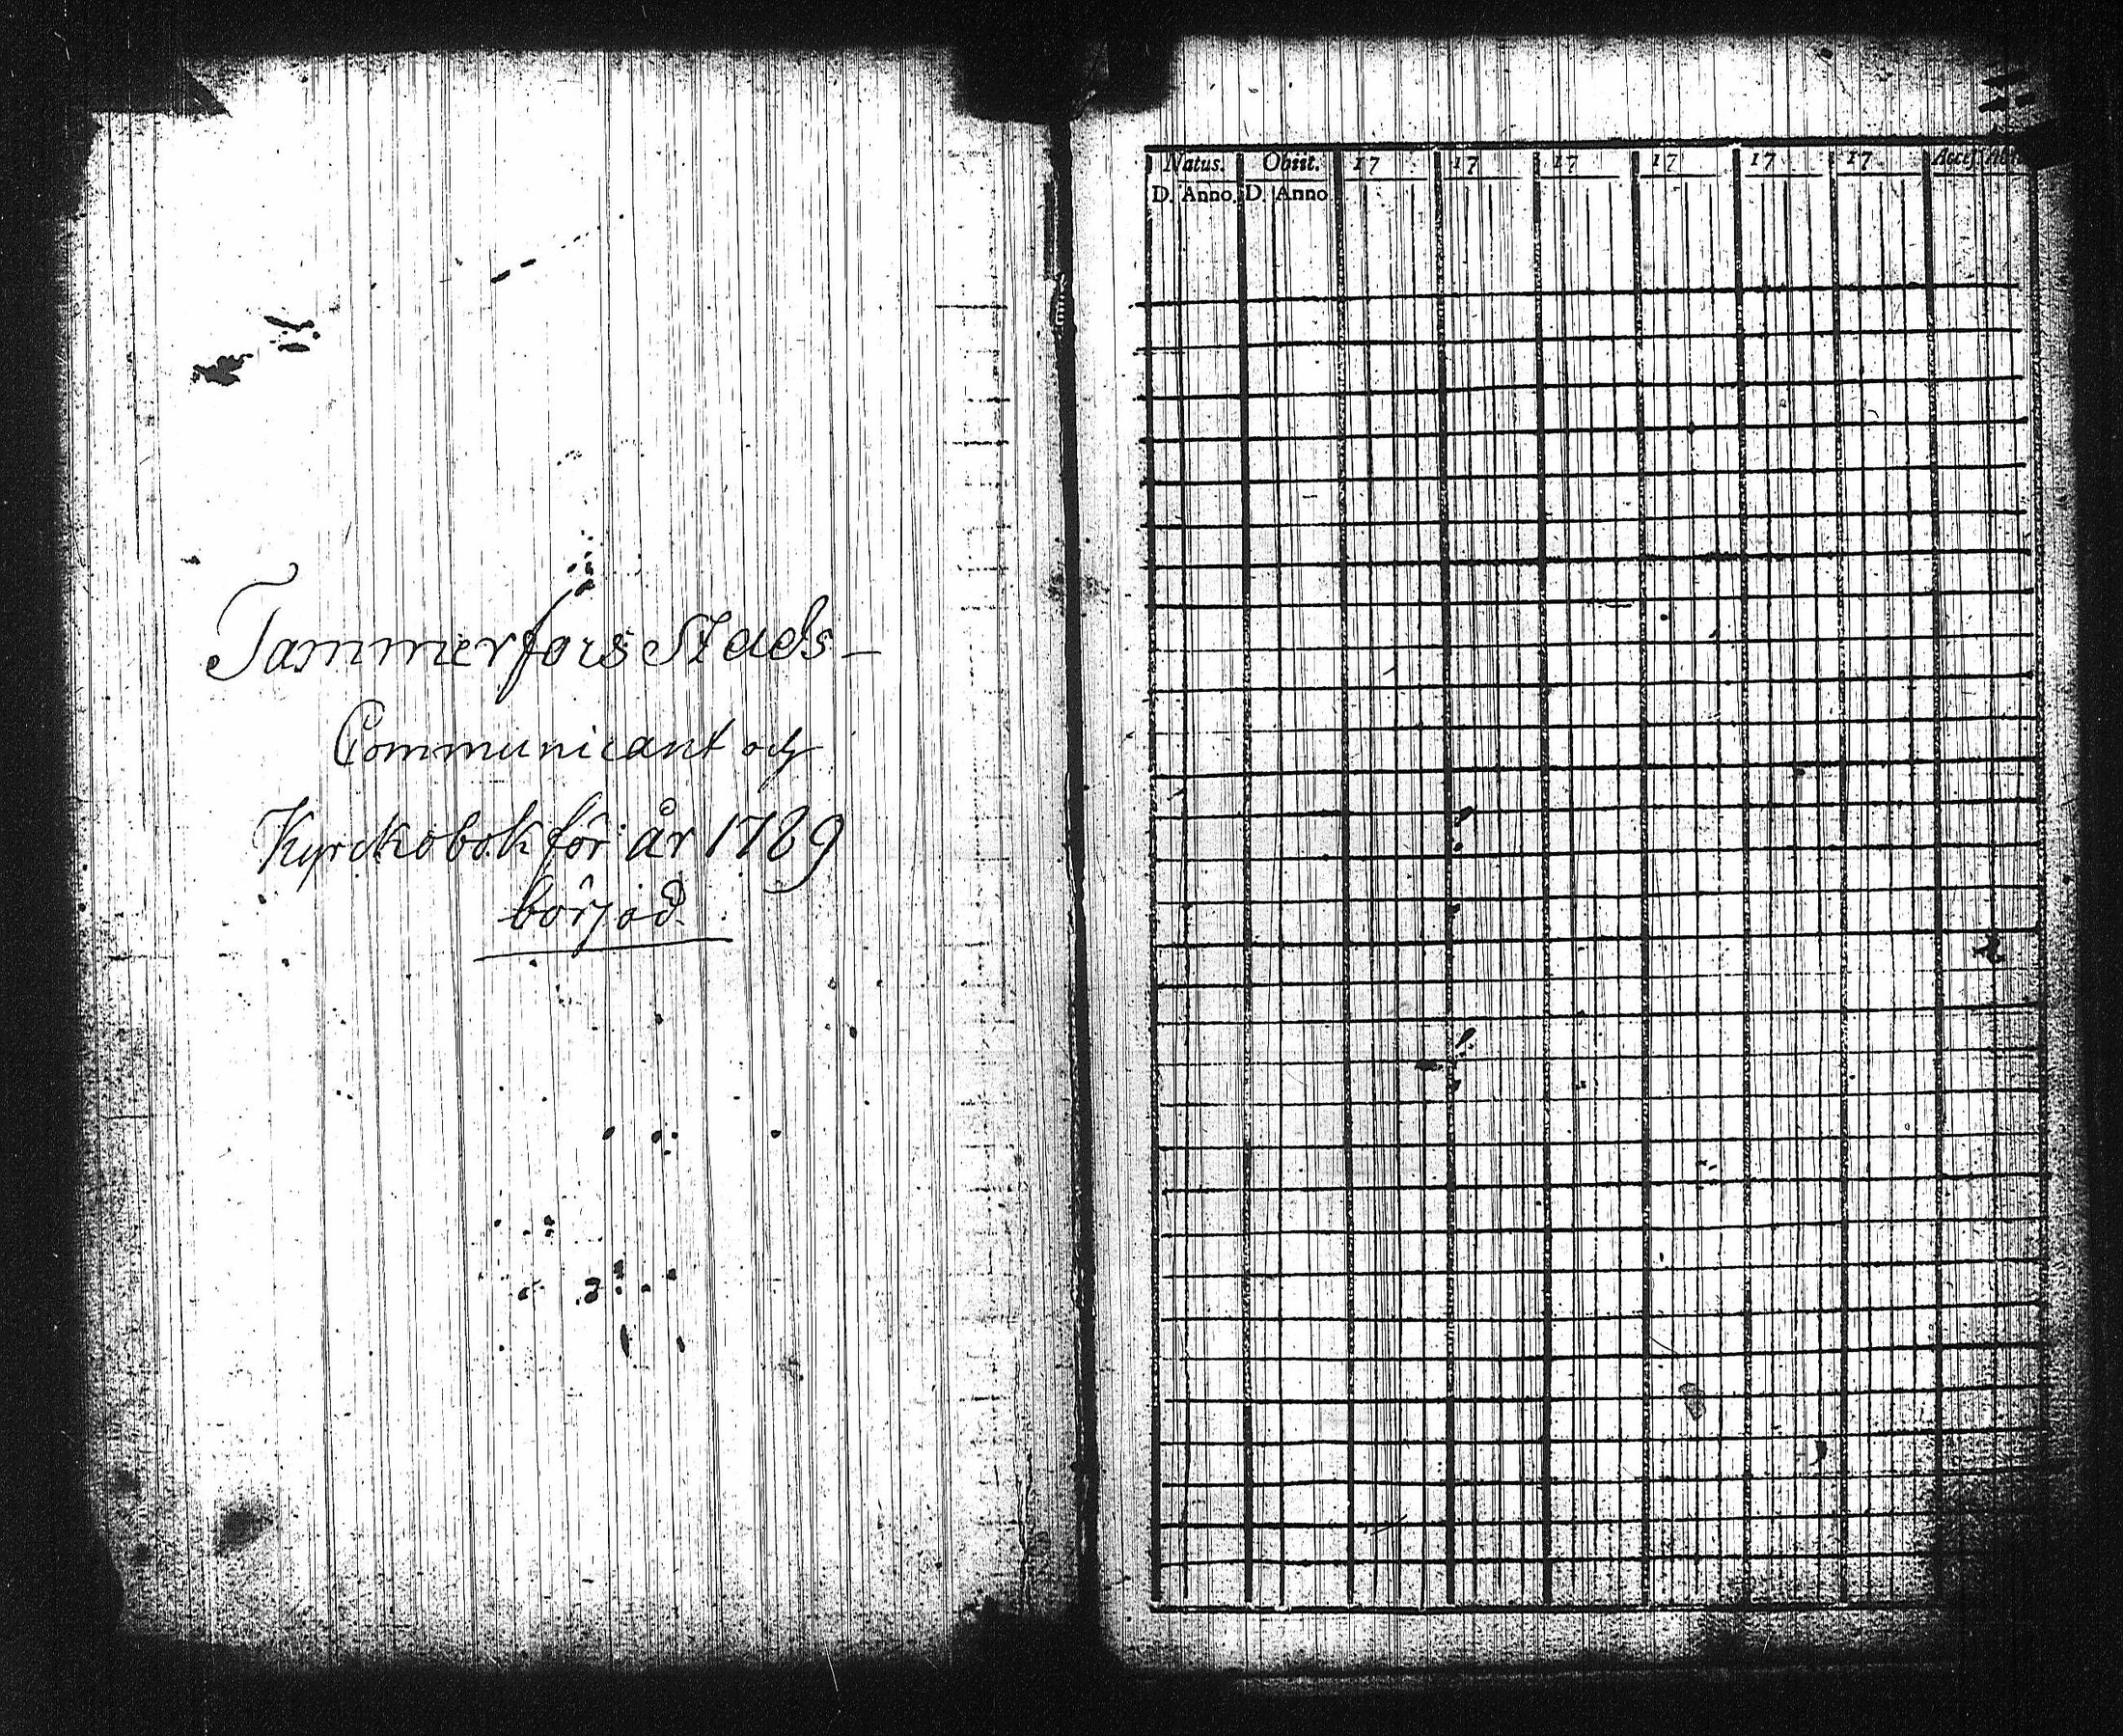 Tammerfors Stads-
Communicant och
Kyrckobok för år 1789
börjad.
Natus. Obiit. 17 17 17 17 17 17
D. Anno. D. Anno